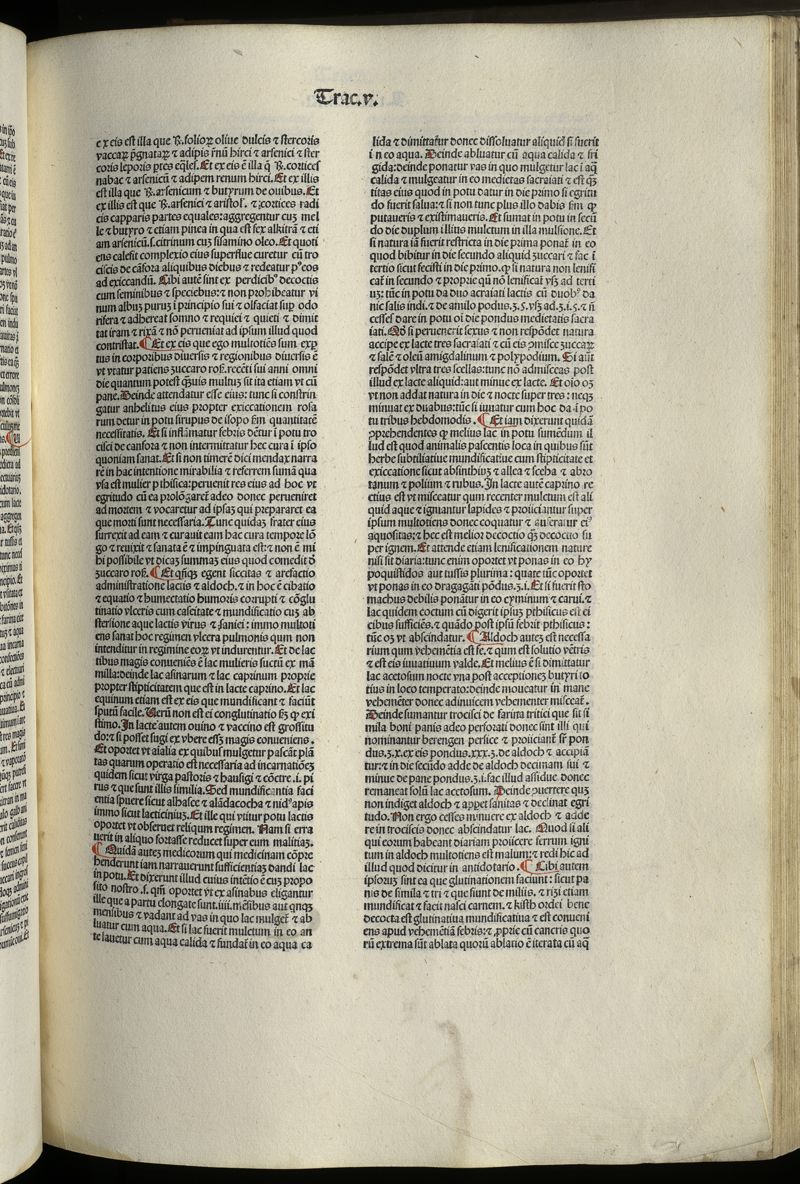 Trac.v.
e x eis est illa que ℞.folioꝝ oliue dulcis ⁊ stercoris
vaccaꝝ p̄gnataꝝ ⁊ adipis r̄nū hirci ⁊ arsenici ⁊ ster
coris leporis ptes eq̄les. Et ex eis ē illa q̄ ℞.cortices
nabac ⁊ arsenicū ⁊ adipem renum hirci. Et ex illis
est illa que ℞.arsenicum ⁊ butyrum de ouibus. Et
ex illis est que ℞.arsenici ⁊ aristol. ⁊ cortices radi
cis capparis partes equales: aggregentur cuz mel
le ⁊ butyro ⁊ etiam pinea in qua est sex alkitrā ⁊ eti
am arsenicū.s.citrinum cuz sisamino oleo. Et quoti
ens calefit complexio eius superflue curetur cū tro
ciscis de cāfora aliquibus diebus ⁊ redeatur p⁹ eos
ad exiccandū. Cibi autē sint ex perdicib⁹ decoctis
cum seminibus ⁊ speciebus: ⁊ non prohibeatur vi
num albuz puruz ī principio sui ⁊ olfaciat sup̱ odo
rifera ⁊ adhereat somno ⁊ requiei ⁊ quieti ⁊ dimit
tat iram ⁊ rixā ⁊ nō perueniat ad ipsum illud quod
contristat. ¶ Et ex eis que ego multotiēs sum exꝑ
tus in corporibus diuersis ⁊ regionibus diuersis ē
vt vtatur patiens zuccaro ros̄. recēti sui anni omni
die quantum potest q̄suis multuz sit ita etiam vt cū
pane. Deinde attendatur esse eius: tunc si constrin
gatur anhelitus eius propter exiccationem rosa
rum detur in potu sirupus de isopo s̄m quantitatē
necessitatis. Et si inflāmatur febris dētur ī potu tro
cisci de canfora ⁊ non intermittatur hec cura ī ipso
quoniam sanat. Et si non timerē dici mendax narra
rē in hac intentione mirabilia ⁊ referrem sumā qua
vsa est mulier pthisica: peruenit res eius ad hoc vt
egritudo cū ea prolōgarēt adeo donec perueniret
ad mortem ⁊ vocaretur ad ipsaz qui prepararet ea
que morti sunt necessaria. Tunc quidaz frater eius
surrexit ad eam ⁊ curauit eam hac cura tempore lō
go ⁊ reuixit ⁊ sanata ē ⁊ impinguata est: ⁊ non ē mi
hi possibile vt dicaz summaz eius quod comedit d̄
zuccaro ros̄. ¶ Et q̄nqz egent siccitas ⁊ arefactio
administratione lactis ⁊ aldoch. ⁊ in hoc ē cibatio
⁊ equatio ⁊ humectatio humoris corrupti ⁊ cōglu
tinatio vlceris cum caseitate ⁊ mundificatio cuz ab
stersione aque lactis virus ⁊ saniei: immo multoti
ens sanat hoc regimen vlcera pulmonis qum non
intenditur in regimine eoꝝ vt indurentur. Et de lac
tibus magis conueniēs ē lac mulieris suctū ex mā
milla: deinde lac asinarum ⁊ lac caprinum proprie
propter stipticitatem que est in lacte caprino. Et lac
equinum etiam est ex eis que mundificant ⁊ faciūt
sputū facile. Verū non est ei conglutinatio s̄m ꝙ exi
stimo. In lacte autem ouino ⁊ vaccino est grossitu
do: ⁊ si posset sugi ex vbere essz magis conueniens.
Et oportet vt aialia ex quibus mulgetur pascāt plā
tas quarum operatio est necessaria ad incarnatiōez
quidem sicut virga pastoris ⁊ hausigi ⁊ cētre.i. pi
rus ⁊ que sunt illis similia. Sed mundificantia faci
entia spuere sicut alhasce ⁊ alādacocha ⁊ nid⁹apis
immo sicut lacticinius. Et ille qui vtitur potu lactis
oportet vt obseruet reliqum regimen. Nam si erra
uerit in aliquo fortasse reducet super eum malitiaz.
¶ Quidā autez medicorum qui medicinam cōpre
henderunt iam narrauerunt sufficientiaz dandi lac
in potu. Et dixerunt illud cuius intētio ē cuz propo
sito nostro .s. qm̄ oportet vt ex asinabus eligantur
ille que a partu elongate sunt.iiii.mēsibus aut qnqz
mensibus ⁊ vadant ad vas in quo lac mulget̄ ⁊ ab
luatur cum aqua. Et si lac fuerit mulctum in eo an
te lauetur cum aqua calida ⁊ fundat̄ in eo aqua ca
lida ⁊ dimittatur donec dissoluatur aliquid si fuerit
i n eo aqua. Deinde abluatur cū aqua calida ⁊ fri
gida: deinde ponatur vas in quo mulgetur lac ī aq̄
calida ⁊ mulgeatur in eo medietas sacraiati ⁊ est q̄z
titas eius quod in potu datur in die primo si egritu
do fuerit salua: ⁊ si non tunc plus illo dabis s̄m ꝙ
putaueris ⁊ existimaueris. Et sumat in potu in secū
do die duplum illius mulctum in illa mulsione. Et
si natura iā fuerit restricta in die prima ponat̄ in eo
quod bibitur in die secundo aliquid zuccari ⁊ fac ī
tertio sicut fecisti in die primo. ꝙ si natura non lenifi
cat̄ in secundo ⁊ proprie qū nō lenificat̄ vsz ad terti
uz: tūc in potu da duo acraiati lactis cū duob⁹ da
nic salis indi. ⁊ de amilo podus.ʒ.ꝭ.vsz ad.ʒ.i.ꝭ. ⁊ ñ
cesses dare in potu ol̄ die pondus medietatis sacra
iati. Qd̄ si peruenerit sexus ⁊ non respōdet natura
accipe ex lacte tres sacraiati ⁊ cū eis pmisce zuccaꝝ
⁊ salē ⁊ oleū amigdalinum ⁊ polypodium. Si aūt
respōdet vltra tres scellas: tunc nō admisceas post
illud ex lacte aliquid: aut minue ex lacte. Et oīo oz
vt non addat natura in die ⁊ nocte super tres: neqz
minuat ex duabus: tūc si iuuatur eum hoc da ī po
tu tribus hebdomodis. ¶ Et iam dixerunt quidā
ꝓprehendentes ꝙ melius lac in potu sumēdum il
lud est quod animalis pascentis loca in quibus sūt
herbe subtiliatiue mundificatiue cum stipticitate et
exiccatione sicut absinthius ⁊ allea ⁊ sceha ⁊ abro
tanum ⁊ polium ⁊ rubus. In lacte autē caprino re
ctius est vt misceatur qum recenter mulctum est ali
quid aque ⁊ igniantur lapides ⁊ proiiciantur super
ipsum multotiens donec coquatur ⁊ auferatur ei⁹
aquositas: ⁊ hec est melior decoctio q̄z decoctio su
per ignem. Et attende etiam lenificationem nature
nisi sit diaria: tunc enim oportet vt ponas in eo hy
poquistidos aut tussis plurima: quare tūc oportet
vt ponas in eo dragagāti pōdus.ʒ.i. Et si fuerit sto
machus debilis ponātur in eo cyminum ⁊ carui. ⁊
lac quidem coctum cū digerit ipsuz pthisicus est ei
cibus sufficiēs. ⁊ quādo post ipsū febrit pthisicus:
tūc oz vt abscindatur. ¶ Aldoch autez est necessa
rium qum vehemētia est fe. ⁊ qum est solutio vētris
⁊ est eis iuuatiuum valde. Et melius ē si dimittatur
lac acetosum nocte vna post acceptionez butyri to
tius in loco temperato: deinde moueatur in mane
vehemēter donec adinuicem vehementer misceat̄.
Deinde sumantur trocisci de farina tritici que sit si
mila boni panis adeo perforati donec sint illi qui
nominantur berengen persice ⁊ proiiciant̄ sr̄ pon
dus.ʒ.x.ex eis pondus.xxx.ʒ.de aldoch ⁊ accipiā
tur: ⁊ in die secūdo adde de aldoch decimam sui ⁊
minue de pane pondus.ʒ.i.fac illud assidue donec
remaneat solū lac acetosum. Deinde ꝓuertere qūz
non indiget aldoch ⁊ appet̄ sanitas ⁊ declinat egri
tudo. Non ergo cesses minuere ex aldoch ⁊ adde
re in trociscis donec abscindatur lac. Quod si ali
qui eorum habeant diariam proiicere ferrum igni
tum in aldoch multotiens est malum: ⁊ redi hic ad
illud quod dicitur in antidotario. ¶ Cibi autem
ipsoruz sint ea que glutinationem faciunt: sicut pa
nis de simila ⁊ tri ⁊ que sunt de milio. ⁊ rizi etiam
mundificat ⁊ facit nasci carnem. ⁊ kisth ordei bene
decocta est glutinatiua mundificatiua ⁊ est conueni
ens apud vehemētiā febris: ⁊ ꝓprie cū cancris quo
rū extrema sūt ablata quorū ablatio ē iterata cū aq̄